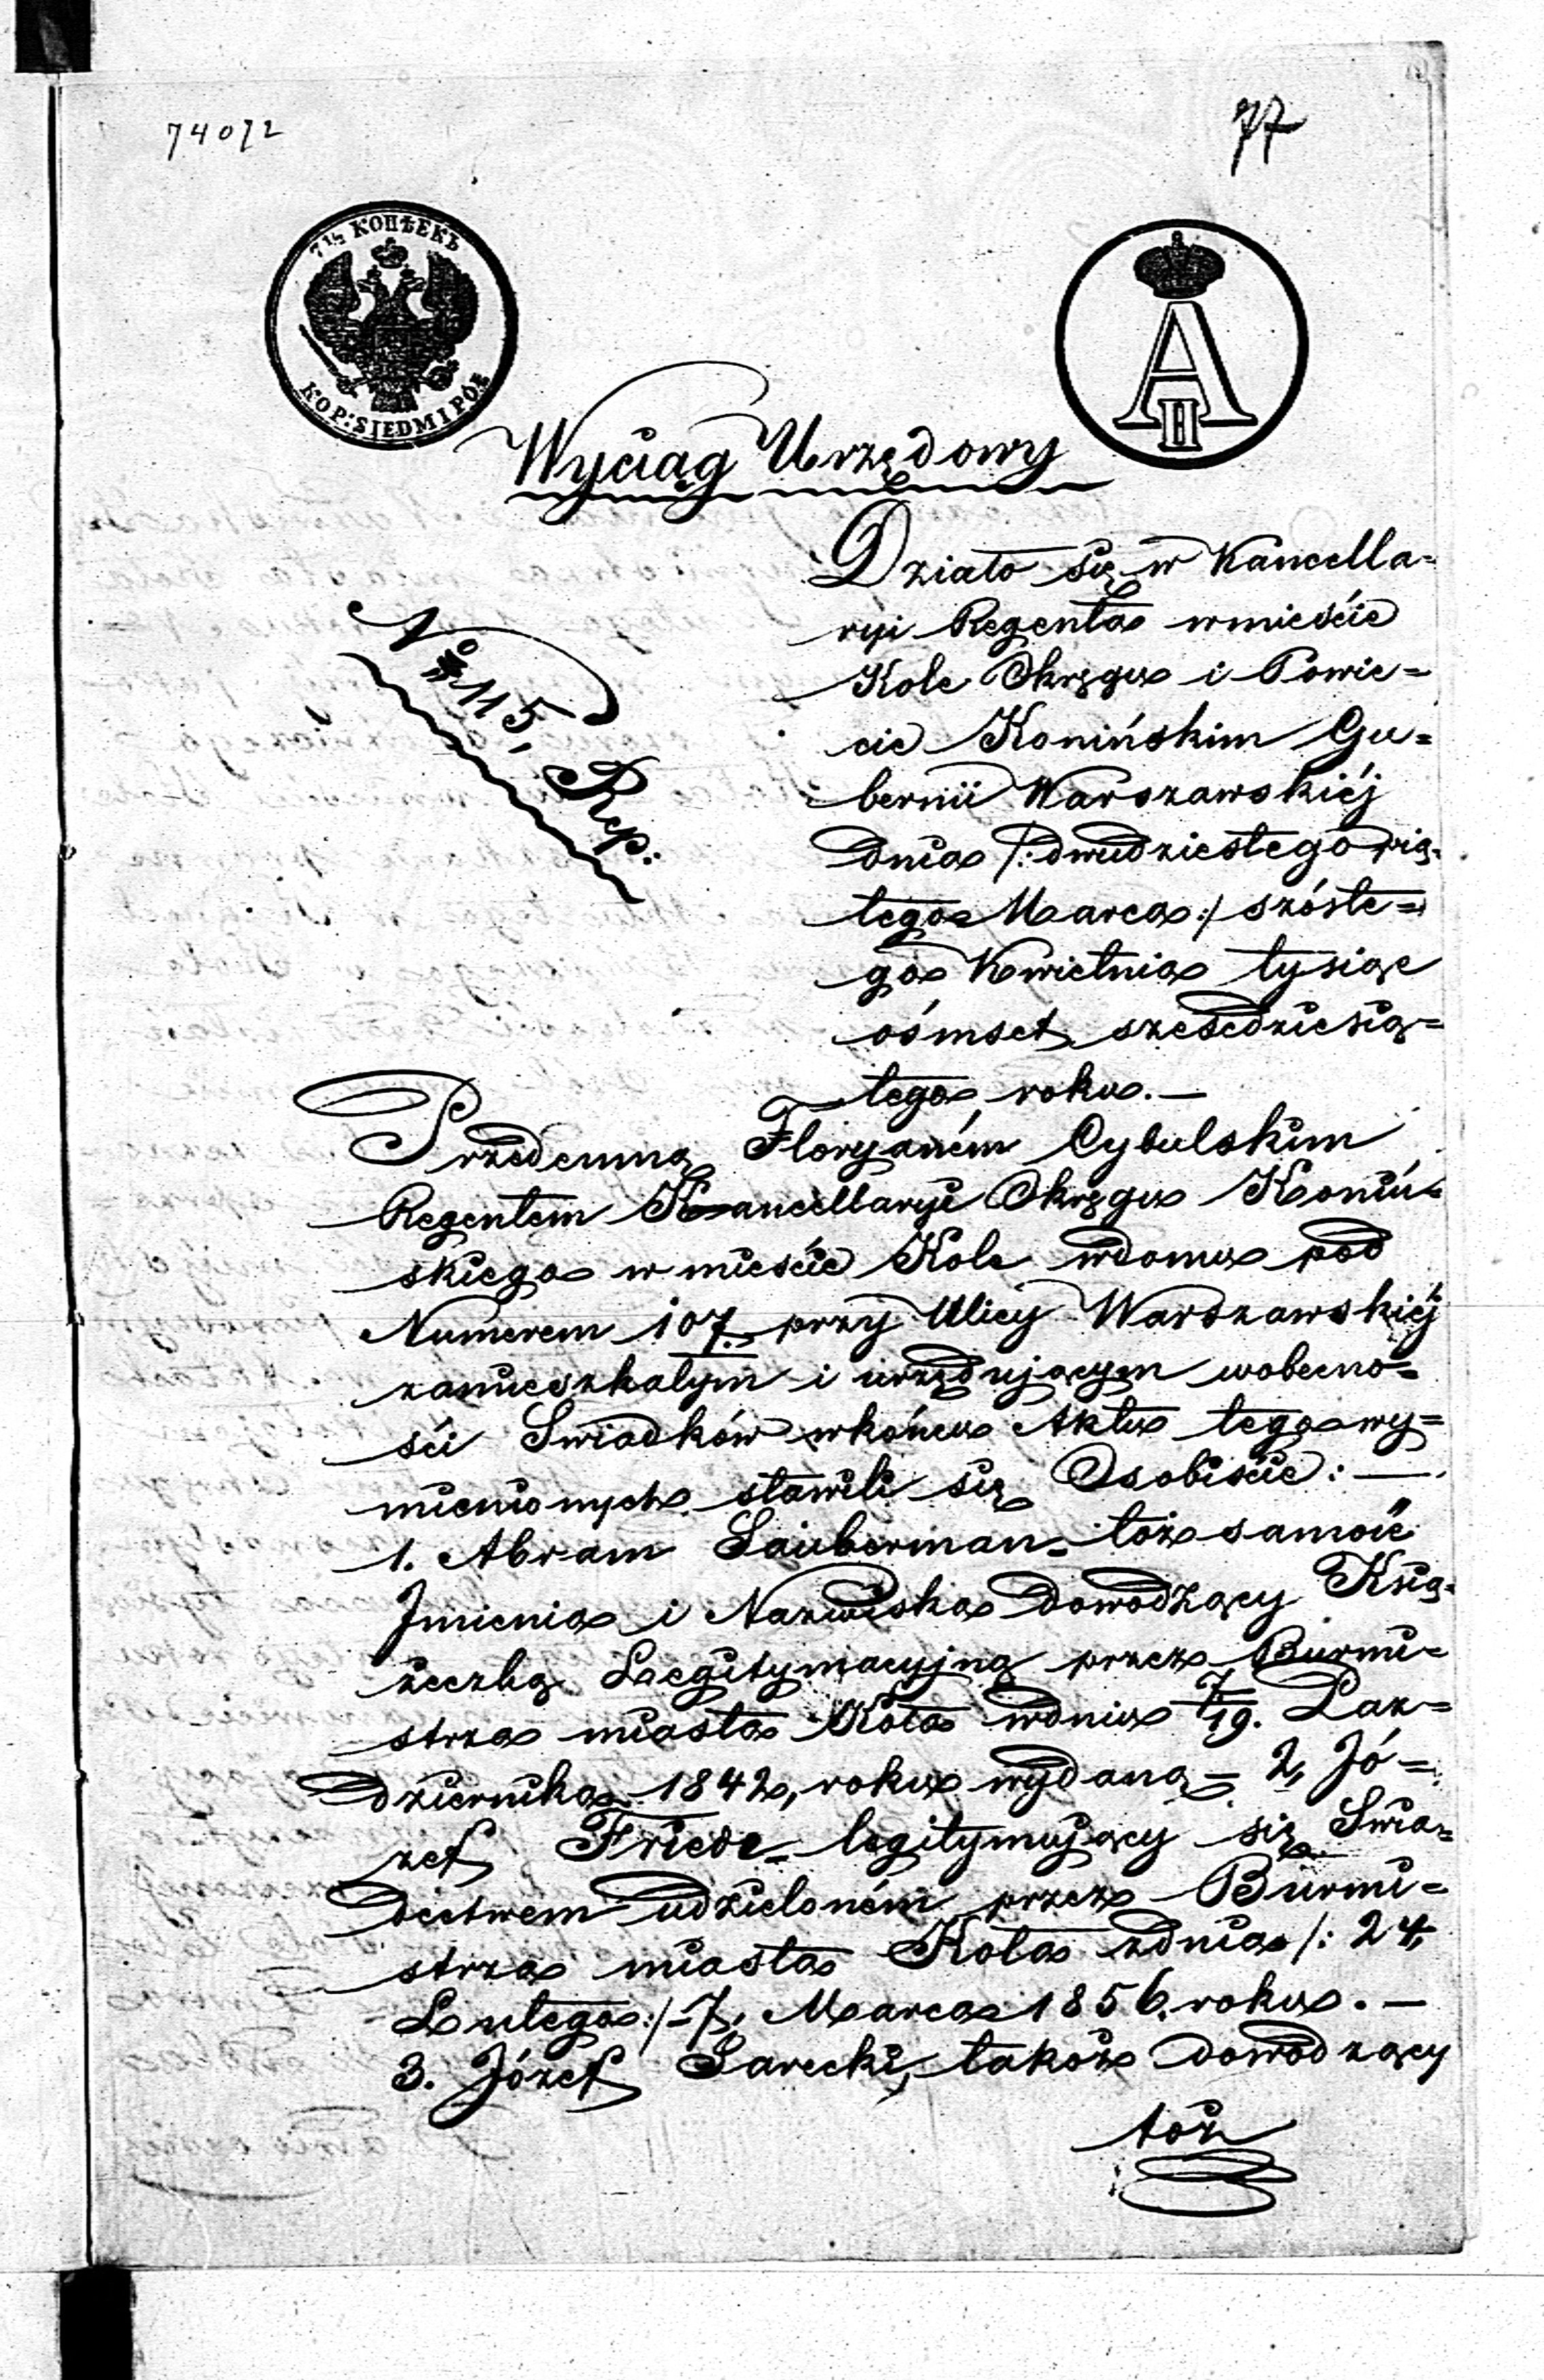 74072
77
7½ КОПѢЕКЪ
KOP: SIEDM I PÓŁ
A II
Wyciąg Urzędowy
№ 115, Rep:
Działo się w Kancella=
ryi Regenta w mieście
Kole Okręgu i Powie=
cie Konińskim Gu=
bernii Warszawskiéj
dnia /: dwudziestego pią=
tego Marca :/ szóste=
go Kwietnia tysiąc
ośmset sześćdziesią=
tego roku. —
Przedemną Floryaném Cybulskim
Regentem Kancellaryi Okręgu Koniń=
skiego w mieście Kole w domu pod
Numerem 107. przy Ulicy Warszawskiéj
zamieszkałym i urzędującym w obecno=
ści Swiadków w końcu Aktu tego wy=
mienionych stawili się Osobiście: —
1. Abram Sauberman = toż samość
Imienia i Nazwiska dowodzący Ksią=
żeczką Legitymacyjną przez Burmi=
strza miasta Koła w dniu 7/19. Paz=
dziernika 1842, roku wydaną = 2, Jó=
zef Friede = legitymujący się Swia=
dectwem udzieloném przez Burmi=
strza miasta Koła z dnia /: 24,
Lutego :/ - 7, Marca 1856. roku. —
3. Józef Sarecki, takoż dowodzący
tóż